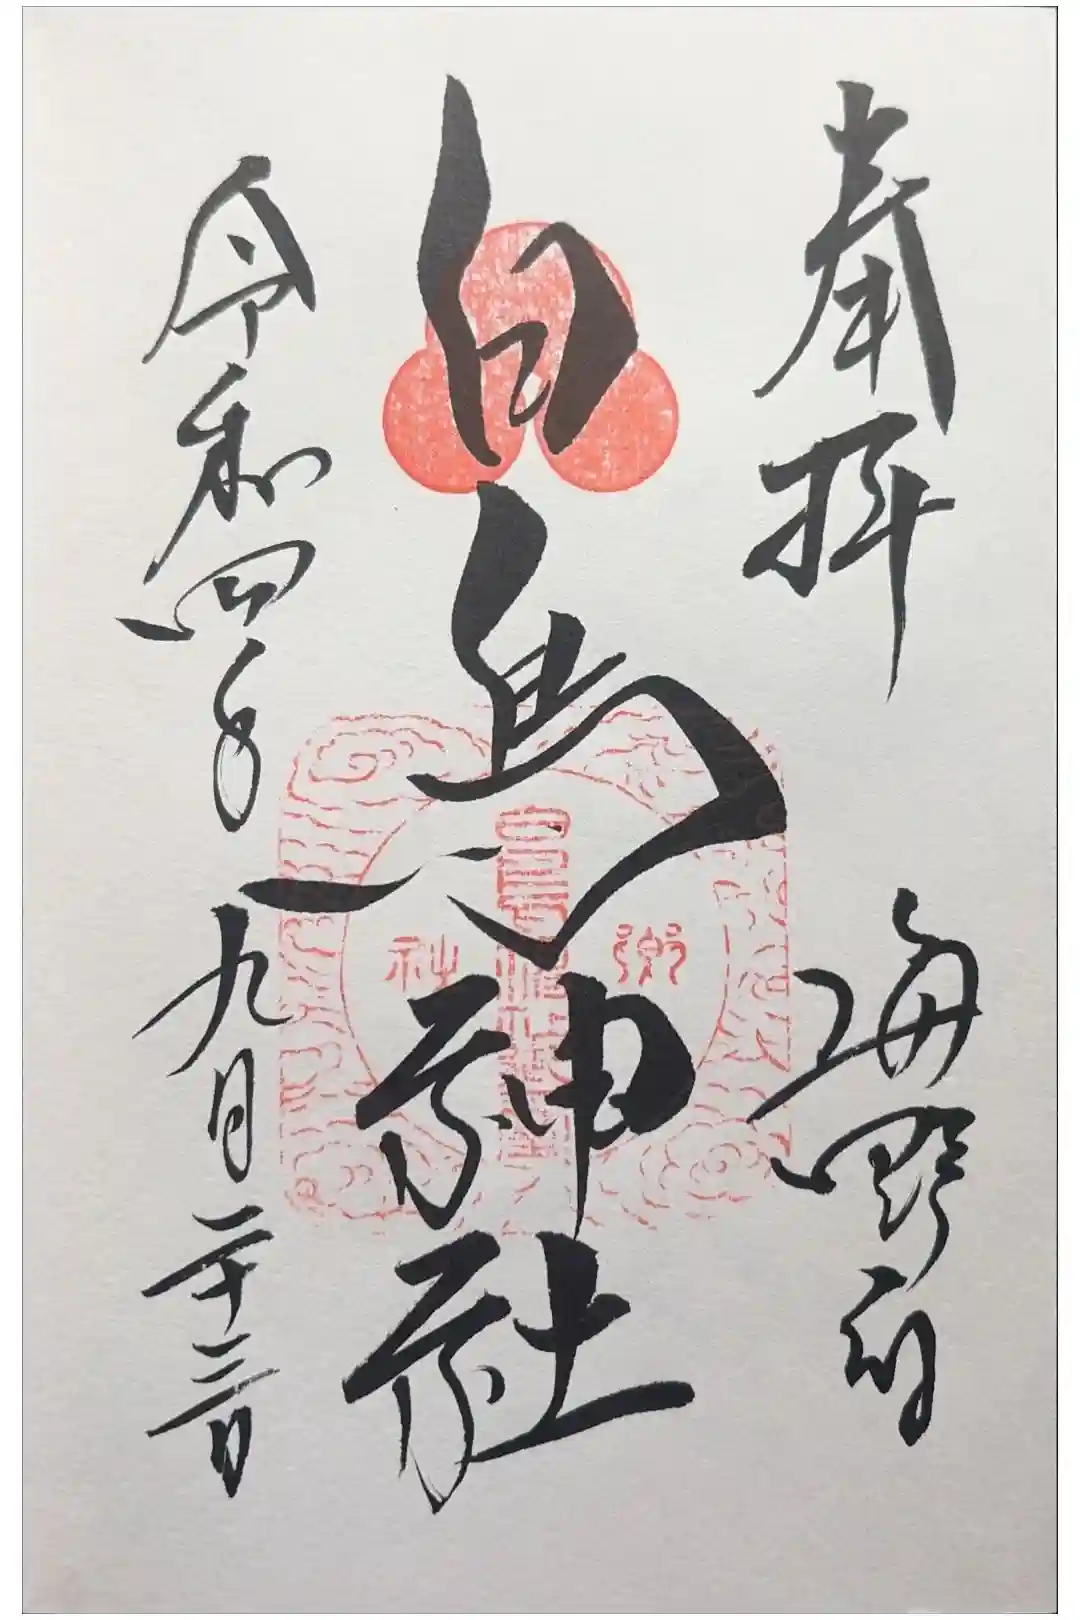 奉拝
海野宿
白鳥神社
令和四年
九月二十三日
御
社